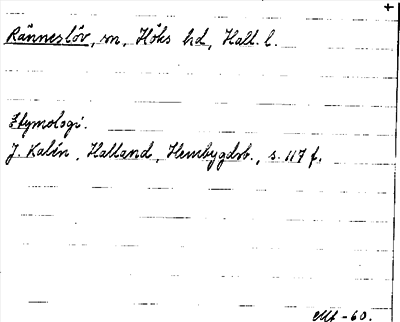 +
Ränneslöv, sn, Höks hd, Hall. l.
Etymologi.
J. Kalén, Halland, Hembygdsb., s. 117 f.
-60.